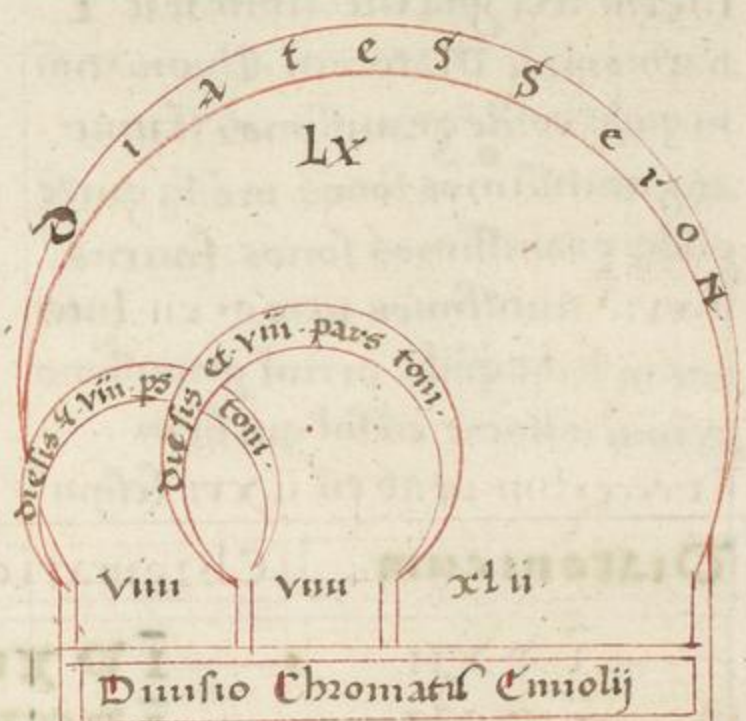 diatesseron
Lx
diesis et viii pars toni.
diesis & viii ps toni.
viiii viiii xlii
Diuisio Chromatis Emiolij